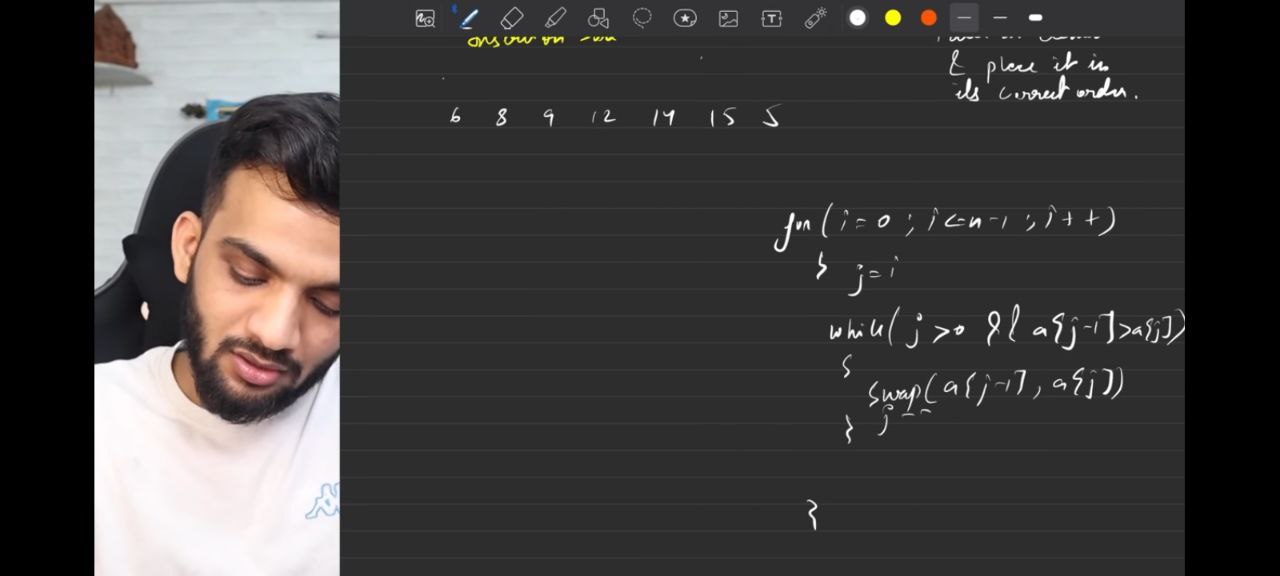 & place it in
its correct order.
6 8 9 12 14 15 5
for (i=0 ; i<=n-1 ; i++)
{ j=i
while( j>0 && a[j-1]>a[j])
{
swap(a[j-1], a[j])
} j--
}